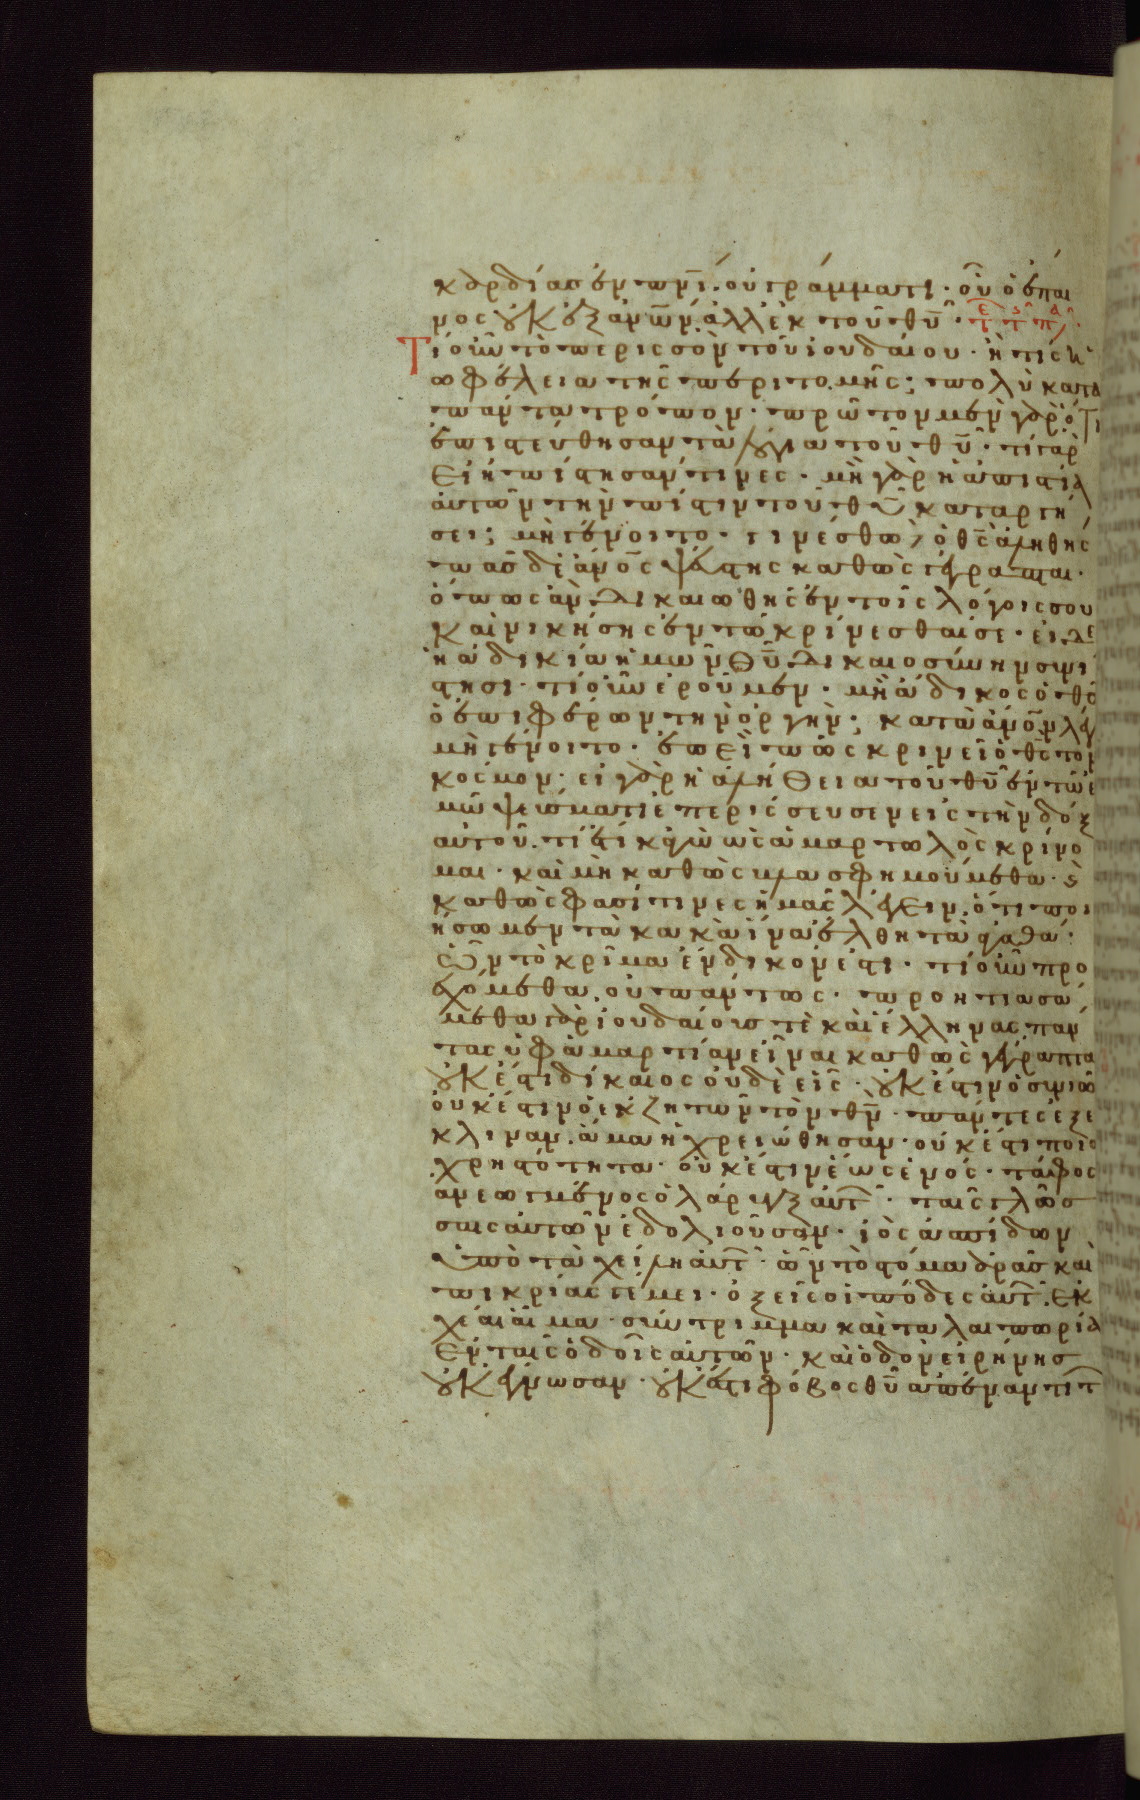 καρδίας ἐν πνι̅. οὐ γράμματι. οὗ ὁ ἔπαι
νος οὐκ ἐξ ἀνω̅ν, ἀλλ' ἐκ τοῦ θυ̅.
Τί οὖν τὸ περισσὸν τοῦ ἰουδαίου. ἢ τίς ἡ
ὠφέλεια τῆς περιτομῆς; πολὺ κατὰ
πάντα τρόπον. πρῶτον μὲν γὰρ ὅτι
ἐπιστεύθησαν τὰ λόγια τοῦ θυ̅. τί γὰρ
εἰ ἠπίστησάν τινες. μὴ γὰρ ἡ ἀπιστία
αὐτῶν τὴν πίστιν τοῦ θυ̅ καταργή
σει; μὴ γένοιτο. γινέσθω ὁ θς̅ ἀληθὴς
πᾶς δὲ ἀνο̅ς ψεύστης καθὼς γέγραπται.
ὅπως ἂν δικαιωθῆς ἐν τοῖς λόγοις σου
καὶ νικήσης ἐν τῶ κρίνεσθαί σε. εἰ δὲ
ἡ ἀδικία ἡμῶν θυ̅ δικαιοσύνην συνί
στησι. τί οὖν ἐροῦμεν. μὴ ἄδικος ὁ θς̅
ὁ ἐπιφέρων τὴν ὀργήν; κατὰ ἀνο̅ν λέγ
μὴ γένοιτο. ἐπεὶ πῶς κρινεῖ ὁ θς̅ τὸν
κόσμον. εἰ γὰρ ἡ ἀλήθεια τοῦ θυ̅ ἐν τῶ ἐ
μῶ ψεύσματι ἐπερίσσευσεν εἰς τὴν δόξ
αὐτοῦ. τί ἔτι κἀγὼ ὡς ἁμαρτωλὸς κρίνο
μαι. καὶ μὴ καθὼς βλασφημούμεθα. καὶ
καθὼς φασί τινες ἡμᾶς λέγειν, ὅτι ποι
ήσωμεν τὰ κακὰ ἵνα ἔλθη τὰ ἀγαθά.
ὧν τὸ κρῖμα ἔνδικόν ἐστι. τί οὖν προ
εχόμεθα. οὐ πάντως. προητιασά
μεθα γὰρ ἰουδαίους τὲ καὶ ἕλληνας, πάν
τας ὑφ' ἁμαρτίαν εἶναι καθὼς γέγραπται
οὐκ ἔστι δίκαιος οὐδὲ εἷς. οὐκ ἔστιν ὁ συνιῶν
οὐκ ἔστιν ὁ ἐκζητῶν τὸν θν̅. πάντες ἐξέ
κλιναν. ἅμα ἠχρειώθησαν. οὐκ ἔστι ποιῶ
χρηστότητα. οὐκ ἔστιν ἕως ἑνός. τάφος
ἀνεωγμένος ὁ λάρυγξ αὐτ. ταῖς γλώσ
σαις αὐτῶν ἐδολιοῦσαν. ἰὸς ἀσπίδων
ὑπὸ τὰ χείλη αὐτ. ὧν τὸ στόμα ἀρᾶς καὶ
πικρίας γέμει. ὀξεῖς οἱ πόδες αὐτ. ἐκ
χέαι αἷμα. σύντριμμα καὶ ταλαιπωρία
ἐν ταῖς ὁδοῖς αὐτῶν. καὶ ὁδὸν εἰρήνης
οὐκ ἔγνωσαν. οὐκ ἔστι φόβος θυ̅ ἀπέναντι τ